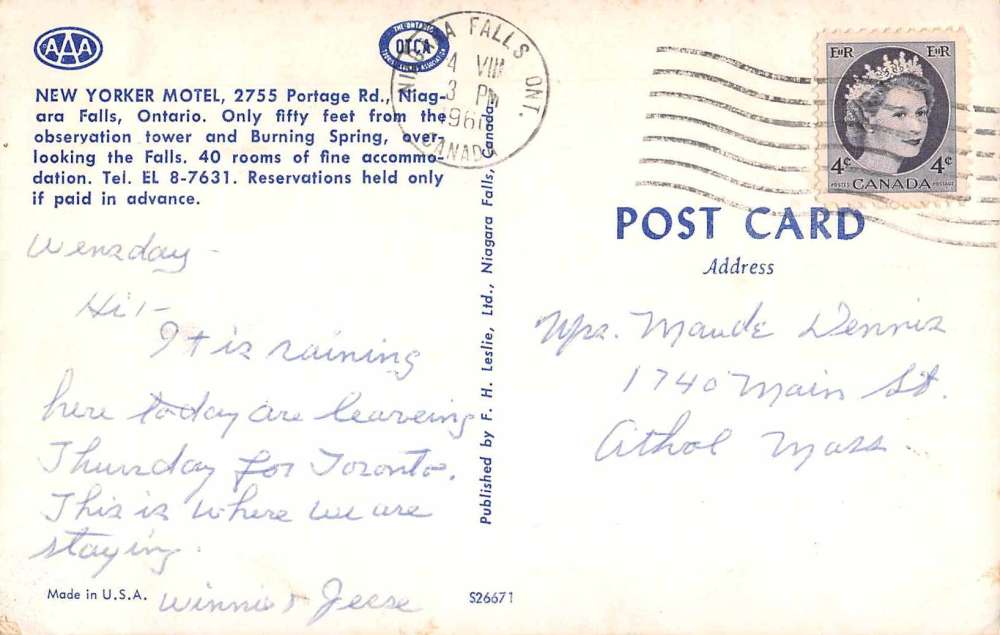 AAA
THE ONTARIO
OTCA
NEW YORKER MOTEL, 2755 Portage Rd., Niag-
ara Falls, Ontario. Only fifty feet from the
observation tower and Burning Spring, over-
looking the Falls. 40 rooms of fine accommo-
dation. Tel. EL 8-7631. Reservations held only
if paid in advance.
Wensday -
Hi! -
It is raining
here today are leaveing
Thursday for Toronto.
This is where we are
staying.
Winnie & Jesse
Made in U.S.A.
S26671
Published by F. H. Leslie, Ltd., Niagara Falls, Canada
NIAGARA FALLS ONT.
4 VIII
3 PM
CANADA
EIIR EIIR
4¢ 4¢
POSTES CANADA POSTAGE
POST CARD
Address
Mrs. Maude Dennis
1740 Main St.
Athol Mass.